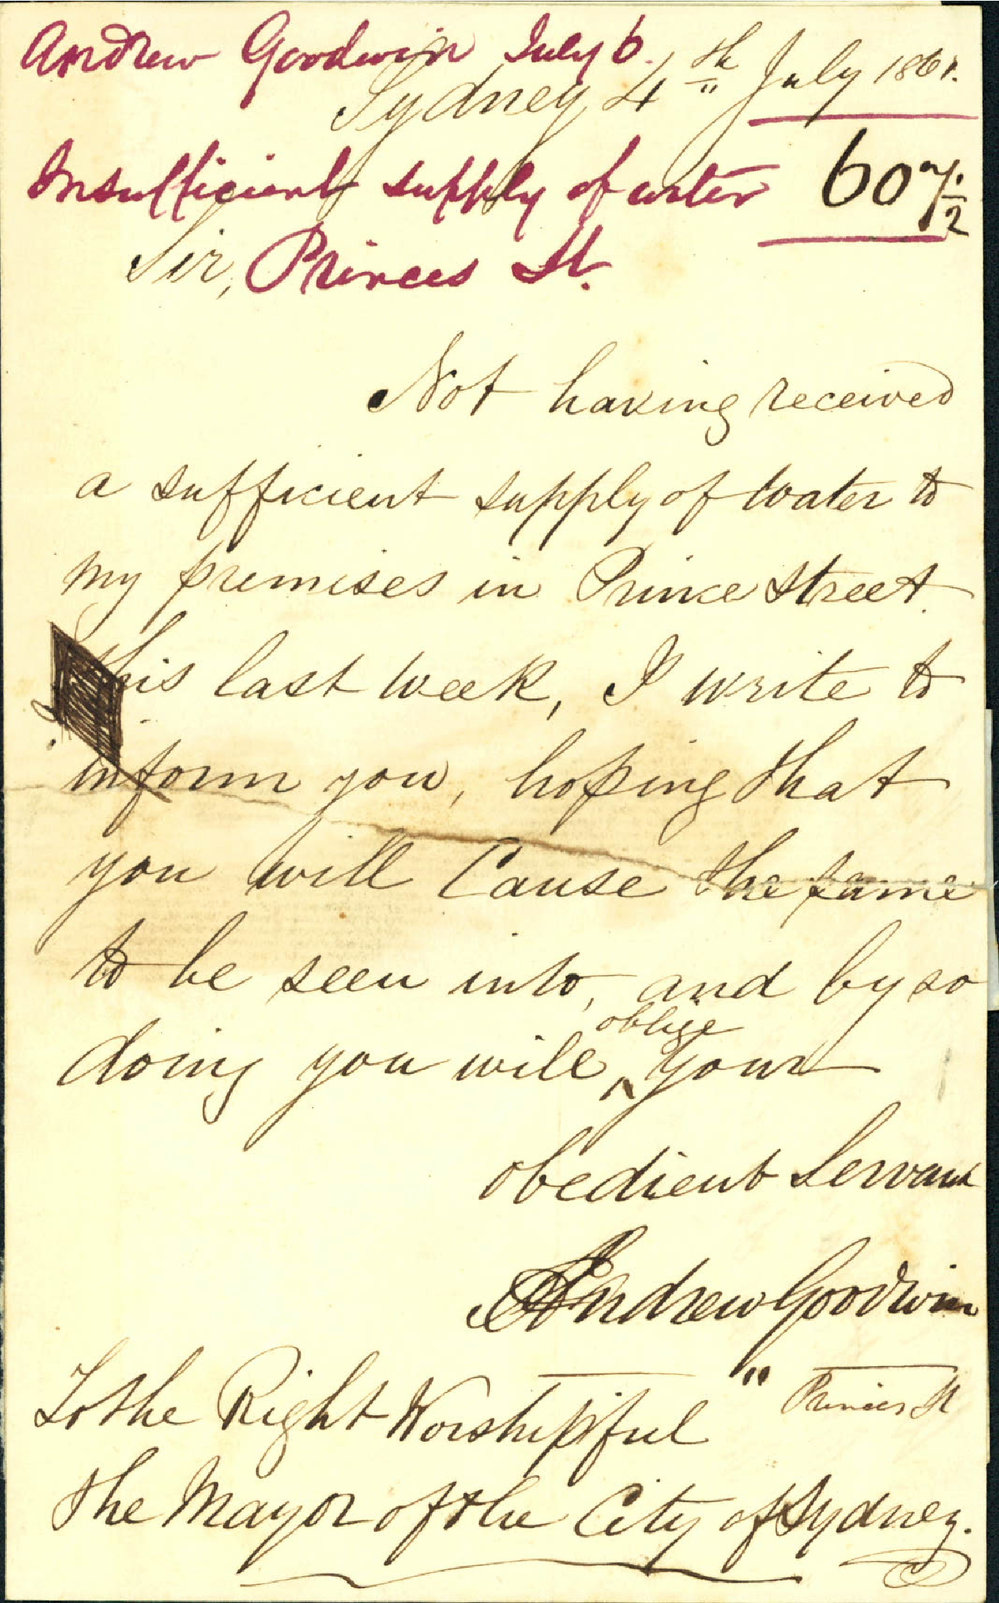 Andrew Goodwin July 6.
Sydney, 4th July 1861.
Insufficient supply of water
607 1/2
Sir, Princes St.
Not having received
a sufficient supply of water to
my premises in Prince Street.
this last week, I write to
inform you, hoping that
you will Cause the same
to be seen into, and by so
oblige
doing you will, your
obedient Servant
Andrew Goodwin
" Princes St
To the Right Worshipful
the Mayor of the City of Sydney.